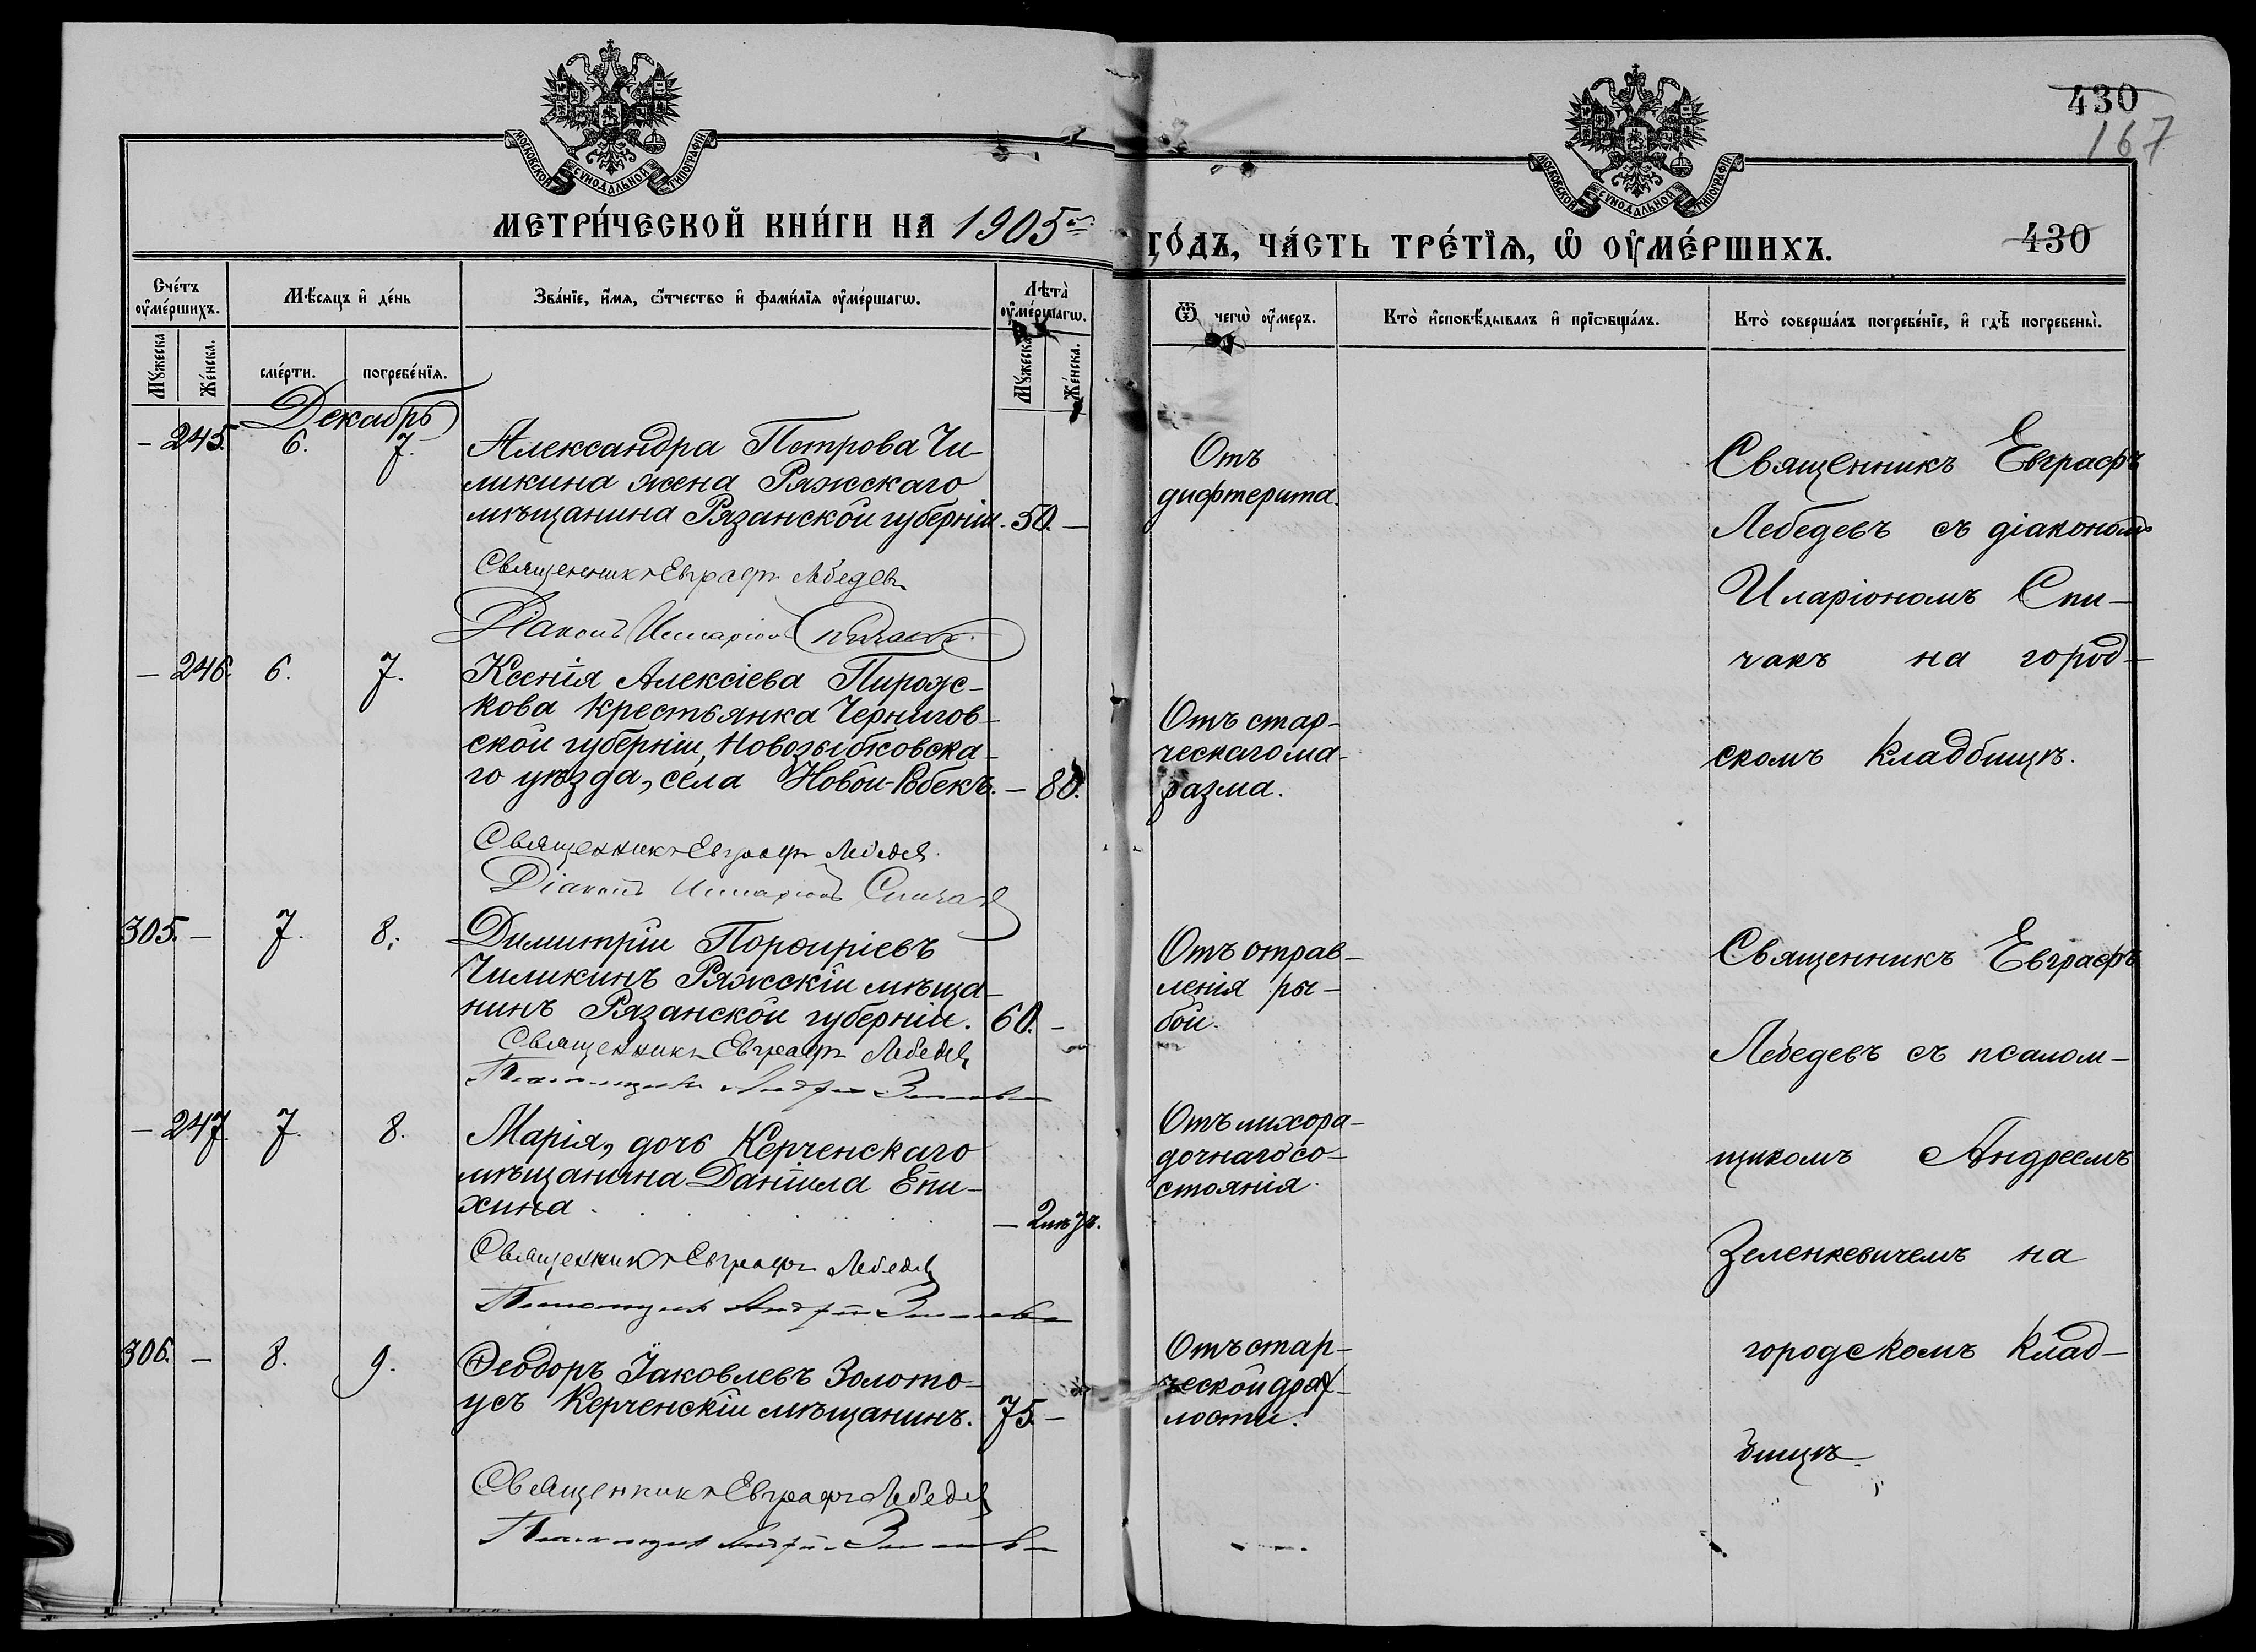 430
167
МОСКОВСКОЙ СѴНОДАЛЬНОЙ ТИПОГРАФІИ
МОСКОВСКОЙ СѴНОДАЛЬНОЙ ТИПОГРАФІИ
МЕТРИ́ЧЕСКОЙ КНИ́ГИ НА 1905й
ГО́ДЪ, ЧА́СТЬ ТРЕ́ТІѦ, Ѡ҆ ОУ҆МЕ́РШИХЪ.
430
Сче́тъ оу҆ме́ршихъ.
Мѣ́сяцъ и҆ де́нь
Зва́нїе, и҆́мя, ѻ҆́тчество и҆ фами́лїя оу҆ме́ршагѡ.
Лѣта̀ оу҆ме́ршагѡ.
Ѿ чегѡ̀ оу҆́меръ.
Кто̀ и҆сповѣ́дывалъ и҆ прїѡбща́лъ.
Кто̀ соверша́лъ погребе́нїе, и҆ гдѣ̀ погребены̀.
Му́жеска
Же́нска.
сме́рти.
погребе́нїя.
Му́жеска
Же́нска.
Декабрь
– 245. 6. 7. Александра Петрова Чи-
ликина жена Ряжскаго
мѣщанина Рязанской губерніи. 50. –
Священникъ Евграфъ Лебедевъ
Діаконъ Иларіонъ Спичакъ.
Отъ
дифтерита.
Священникъ Евграфъ
Лебедевъ съ діакономъ
Иларіономъ Спи-
чакъ на город-
скомъ кладбищѣ.
– 246. 6. 7. Ксенія Алексіева Пирож-
кова крестьянка Чернигов-
ской губерніи, Новозыбковска-
го уѣзда, села Новой-Юбекъ. – 80.
Священникъ Евграфъ Лебедевъ
Діаконъ Иларіонъ Спичакъ
Отъ стар-
ческаго ма-
разма.
305. – 7. 8. Димитрій Порфиріевъ
Чиликинъ Ряжскій мѣща-
нинъ Рязанской губерніи. 60. –
Священникъ Евграфъ Лебедевъ
Псаломщикъ Андрей
Отъ отрав-
ленія ры-
бой.
Священникъ Евграфъ
Лебедевъ съ псалом-
щикомъ Андреемъ
Зеленкевичемъ на
городскомъ клад-
бищѣ.
– 247. 7. 8. Марія, дочь Керченскаго
мѣщанина Даніила Епи-
хина – 2
Священникъ Евграфъ Лебедевъ
Псаломщикъ Андрей
Отъ лихора-
дочнаго со-
стоянія.
306. – 8. 9. Ѳеодоръ Іаковлевъ Золото-
усъ Керченскій мѣщанинъ. 75. –
Священникъ Евграфъ Лебедевъ
Псаломщикъ Андрей
Отъ стар-
ческой дрях-
лости.